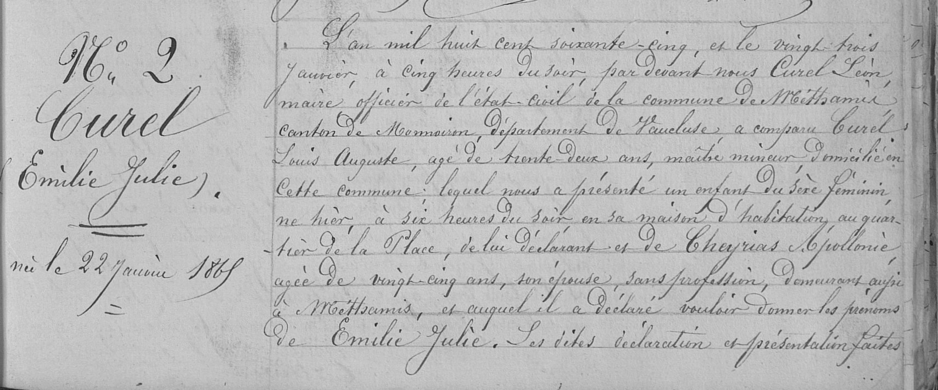 N.o 2
Curel
(Emilie Julie).
née le 22 Janvier 1865
L'an mil huit cent soixante-cinq, et le vingt trois
Janvier, à cinq heures du soir, par devant nous Curel Léon,
maire, officier de l'état-civil de la commune de Méthamis
canton de Mormoiron, département de Vaucluse a comparu Curel
Louis Auguste, agé de trente-deux ans, maître mineur domicilié en
cette commune: lequel nous a présenté un enfant du sèxe féminin
ne hièr, à six heures du soir, en sa maison d'habitation, au quar-
tièr de la Place, de lui déclarant et de Cheyrias Apollonie
agée de vingt-cinq ans, son épouse, sans profession, demeurant aussi
à Méthamis, et auquel il a déclaré vouloir donner les prénoms
de Emilie Julie. Les dites déclaration et présentation faites